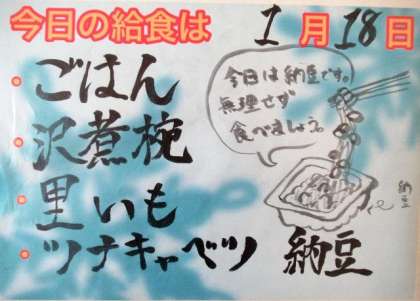 今日の給食は 1月18日
ごはん
沢煮椀
里いも
ツナキャベツ 納豆
今日は納豆です。
無理せず
食べましょう。
納豆